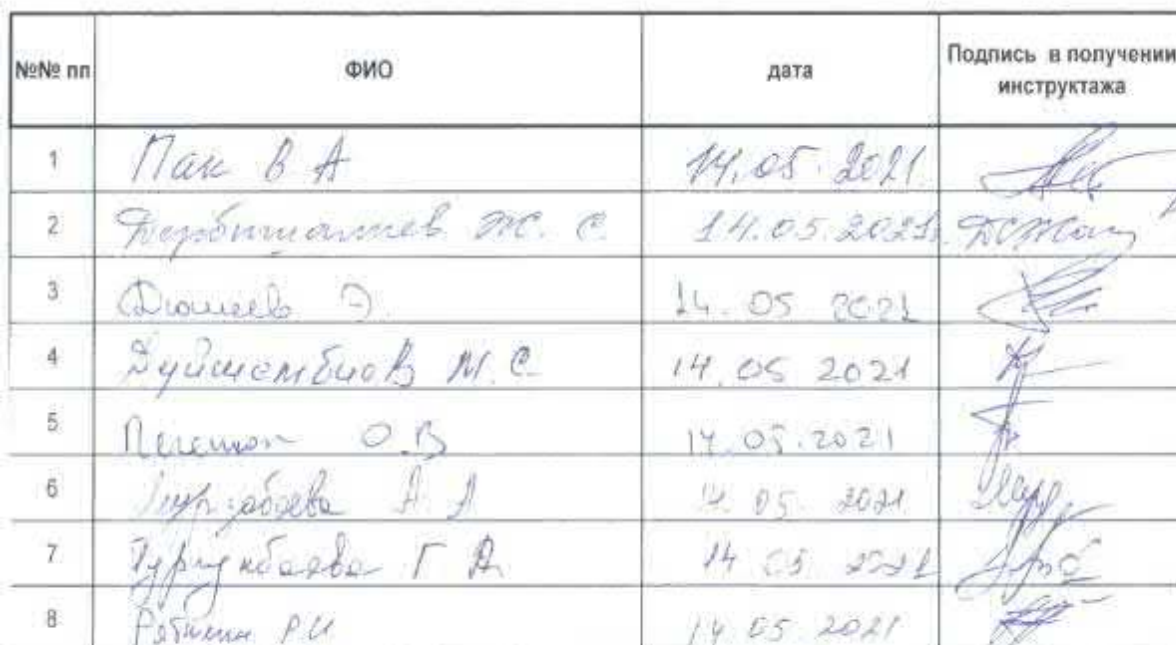 №№ пп ФИО дата Подпись в получении инструктажа
1 Пак В А 14.05.2021
2 Дербишалиев Ж. С. 14.05.2021
3 Дюшеев Э. 14.05 2021
4 Дуйшембиев М.С. 14.05 2021
5 О.В 14.05.2021
6 А.А 14.05. 2021
7 Турсунбаева Г А 14 05 2021
8 Рябинин Р И 14.05.2021